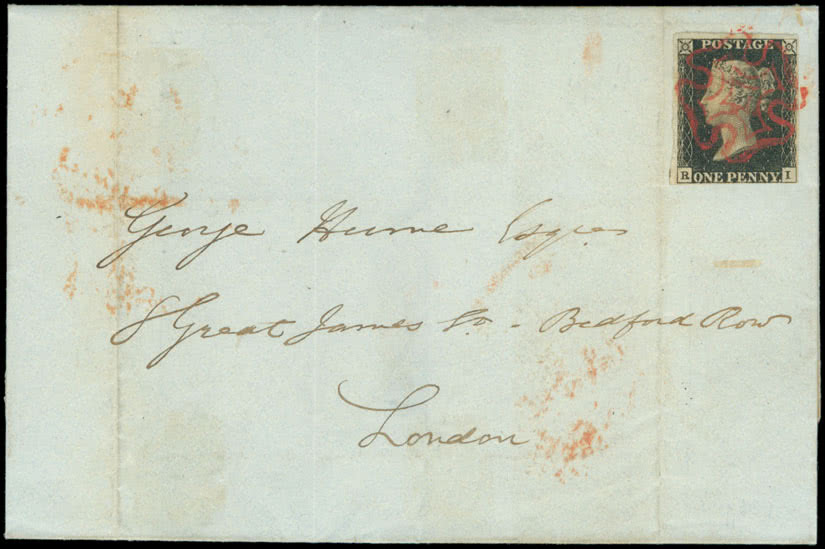 POSTAGE
R ONE PENNY. I
George Hume Esqre
8 Great James St - Bedford Row
London